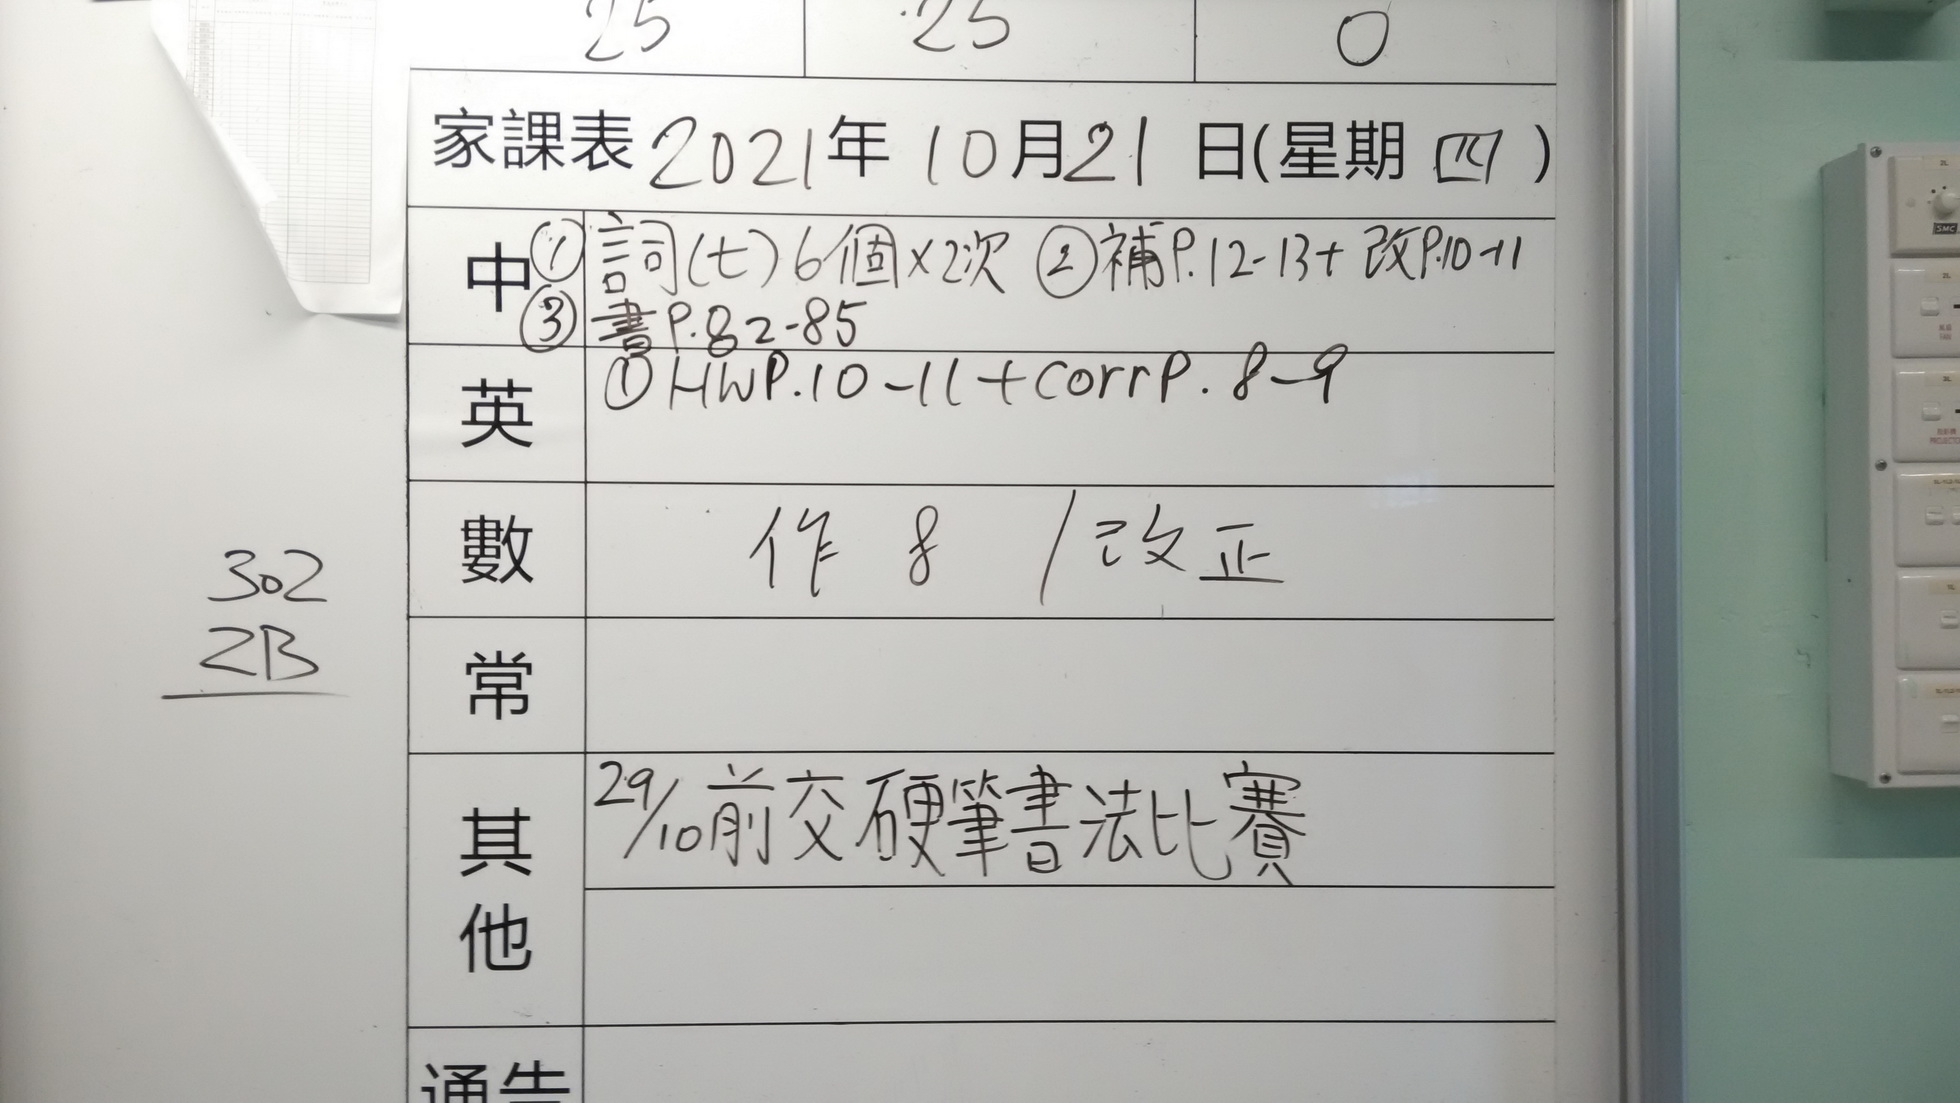 25 25 0
家課表 2021年 10月21日(星期 四)
中 ① 詞(七)6個×2次 ② 補P.12-13+ 改P.10-11
③ 書P.82-85
英 ① HWP.10-11+corrP.8-9
數 作 8 / 改正
302
2B
常
其他 29/10前交硬筆書法比賽
通告
SMC